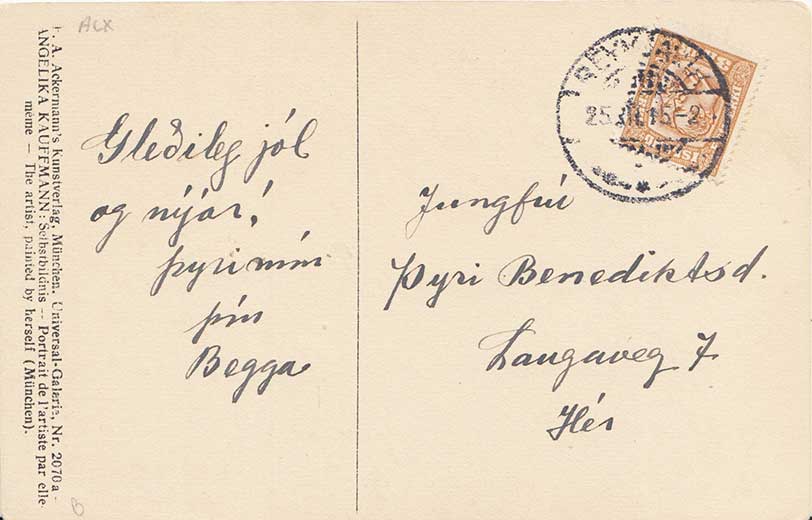 F. A. Ackermann's Kunstverlag, München, Universal-Galerie, Nr. 2070a -
ANGELIKA KAUFFMANN, Selbstbildnis -- Portrait de l'artiste par elle-
même — The artist, painted by herself (München).
Gleðileg jól
og nýár!
Þyri mín
þín
Begga
REYKJAVIK
25.XII.15-2
Jungfrú
Þyri Benediktsd.
Laugaveg 7
Hér
B